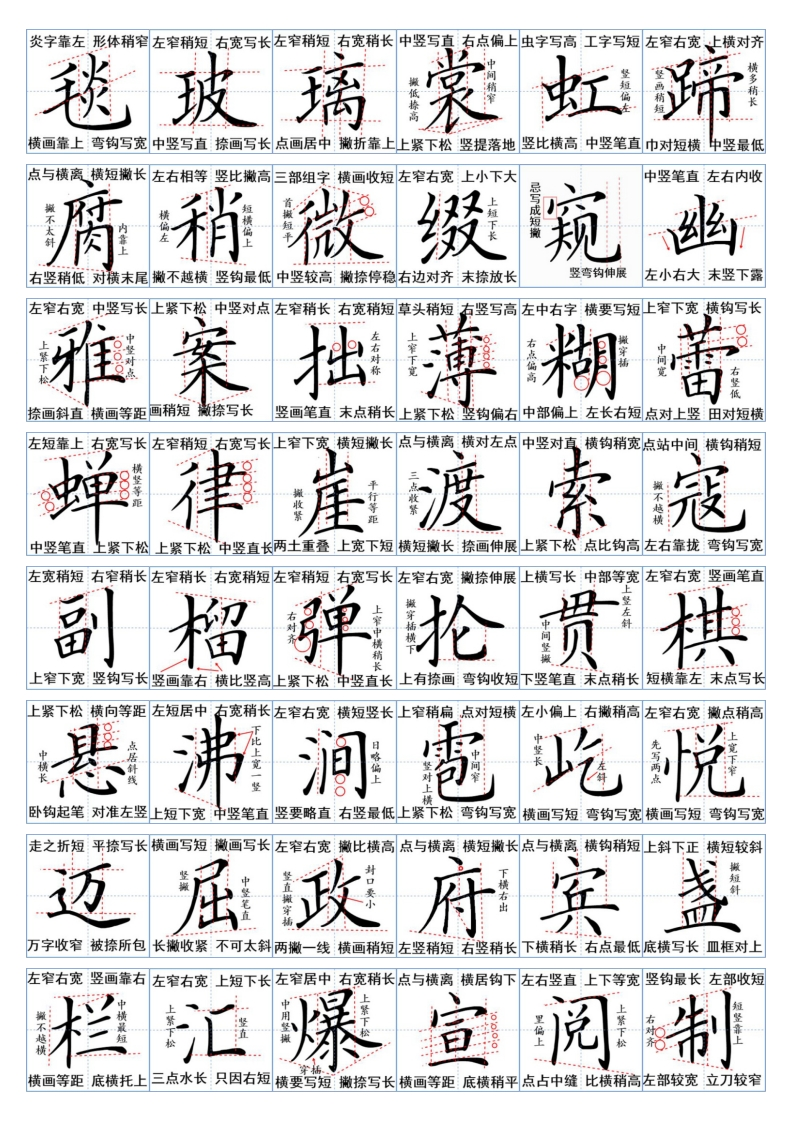 炎字靠左 形体稍窄
毯
横画靠上 弯钩写宽
左窄稍短 右宽写长
玻
中竖写直 捺画写长
左窄稍短 右宽稍长
璃
点画居中 撇折靠上
中竖写直 右点偏上
撇低捺高
裳
中间稍窄
上紧下松 竖提落地
虫字写高 工字写短
虹
竖短偏左
竖比横高 中竖笔直
左窄右宽 上横对齐
竖画稍短
蹄
横多稍长
巾对短横 中竖最低
点与横离 横短撇长
撇不太斜
腐
内靠上
右竖稍低 对横末尾
左右相等 竖比撇高
横偏左
稍
短横偏上
撇不越横 竖钩最低
三部组字 横画收短
首撇短平
微
中竖较高 撇捺停稳
左窄右宽 上小下大
缀
上短下长
右边对齐 末捺放长
忌写成短撇
窥
竖弯钩伸展
中竖笔直 左右内收
幽
左小右大 末竖下露
左窄右宽 中竖写长
上紧下松
雅
中竖对点
捺画斜直 横画等距
上紧下松 中竖对点
案
画稍短 撇捺写长
左窄稍长 右宽稍短
拙
左右对称
竖画笔直 末点稍长
草头稍短 右竖写高
上窄下宽
薄
上紧下松 竖钩偏右
左中右字 横要写短
右点偏高
糊
撇穿插
中部偏上 左长右短
上窄下宽 横钩写长
中间宽
蕾
右竖低
点对上竖 田对短横
左短靠上 右宽写长
蝉
横竖等距
中竖笔直 上紧下松
左窄稍短 右宽写长
律
上紧下松 中竖直长
上窄下宽 横短撇长
撇收紧
崖
平行等距
两土重叠 上宽下短
点与横离 横对左点
三点收紧
渡
横短撇长 捺画伸展
中竖对直 横钩稍宽
索
上紧下松 点比钩高
点站中间 横钩稍短
撇不越横
寇
左右靠拢 弯钩写宽
左宽稍短 右窄稍长
副
上窄下宽 竖钩写长
左窄稍长 右宽稍短
榴
竖画靠右 横比竖高
左窄稍短 右宽写长
右对齐
弹
上窄中横稍长
上紧下松 中竖直长
左窄右宽 撇捺伸展
撇穿插横下
抡
上有捺画 弯钩收短
上横写长 中部等宽
中间竖撇
贯
上竖左斜
下竖笔直 末点稍长
左窄右宽 竖画笔直
棋
短横靠左 末点写长
上紧下松 横向等距
中横长
悬
点居斜线
卧钩起笔 对准左竖
左短居中 右宽稍长
沸
下比上宽一竖
上短下宽 中竖笔直
左窄右宽 横短竖长
涧
日略偏上
竖要略直 右竖最低
上窄稍扁 点对短横
竖对上横
雹
中间窄
上紧下松 弯钩写宽
左小偏上 右撇稍长
中竖长
屹
左斜
横画写短 弯钩写宽
左窄右宽 撇点稍高
先写两点
悦
上宽下窄
横画写短 弯钩写宽
走之折短 平捺写长
迈
万字收窄 被捺所包
横画写短 撇画写长
竖撇
屈
中竖笔直
长撇收紧 不可太斜
左窄右宽 撇比横高
竖直撇穿插
政
封口要小
两撇一线 横画稍短
点与横离 横短撇长
府
下横右出
左竖稍短 右竖稍长
点与横离 横钩稍短
宾
下横稍长 右点最低
上斜下正 横短较斜
盏
撇短斜
底横写长 皿框对上
左窄右宽 竖画靠右
撇不越横
栏
中横最短
横画等距 底横托上
左窄右宽 上短下长
上紧下松
汇
竖直
三点水长 只因右短
左窄居中 右宽稍长
中用竖撇
爆
上紧下松
穿插
横要写短 撇捺写长
点与横离 横居钩下
宣
横画等距 底横稍平
左右竖直 上下等宽
里偏上
阅
上紧下松
点占中缝 比横稍高
竖钩最长 左部收短
右对齐
制
短竖靠上
左部较宽 立刀较窄